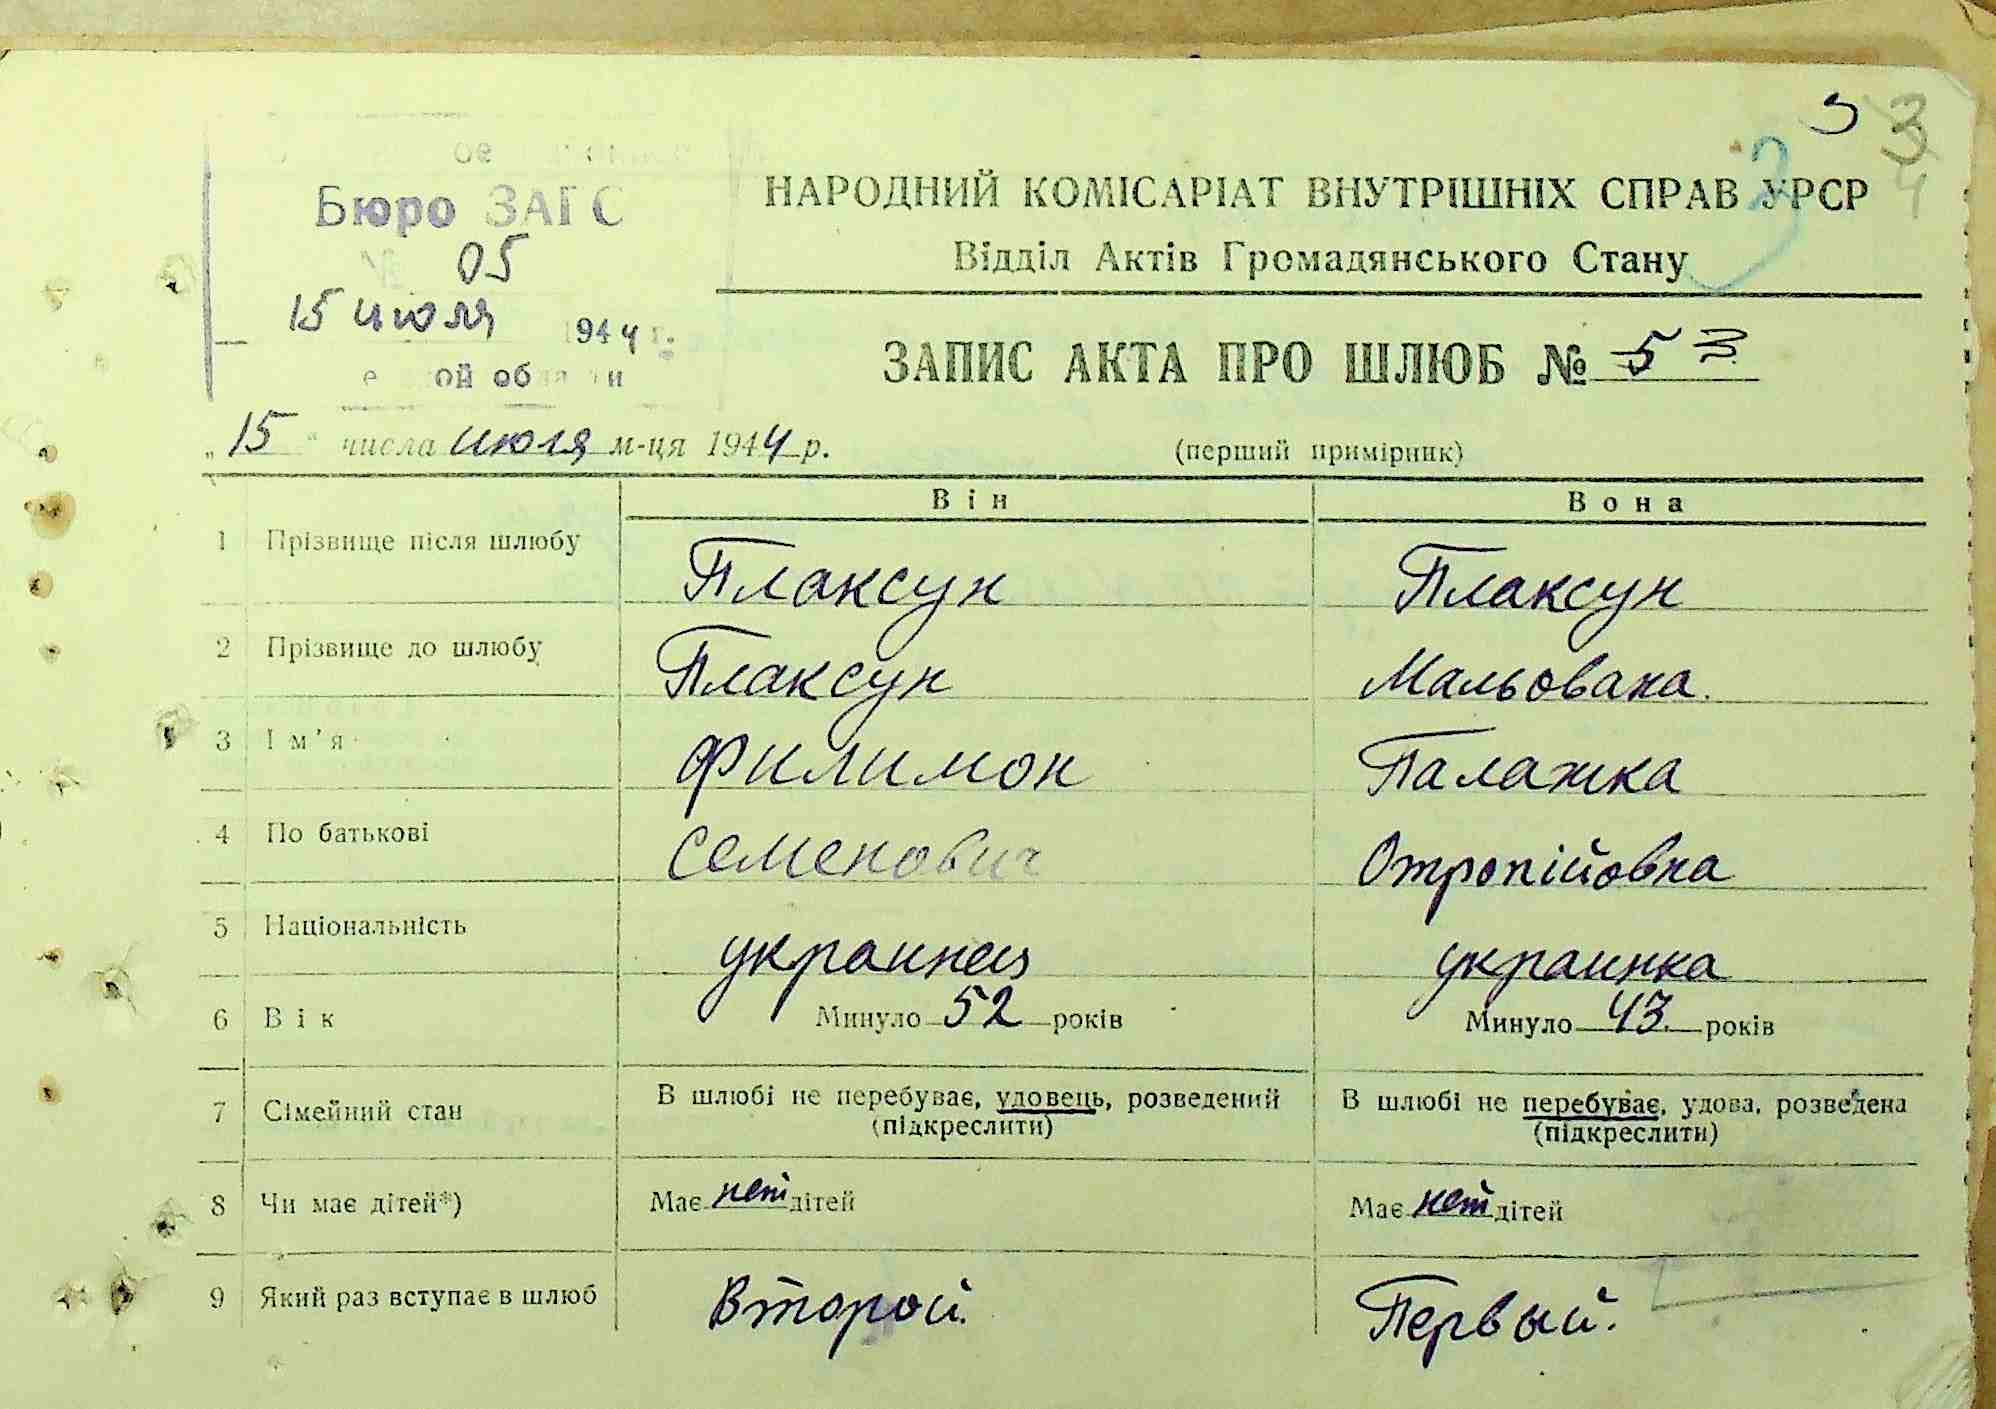 Бюро ЗАГС
05
15 июля 1944 г.
НАРОДНИЙ КОМІСАРІАТ ВНУТРІШНІХ СПРАВ УРСР
Відділ Актів Громадянського Стану
ЗАПИС АКТА ПРО ШЛЮБ № 53
„15“ числа июля м-ця 1944 р. (перший примірник)
Він Вона
1 Прізвище після шлюбу Плаксун Плаксун
2 Прізвище до шлюбу Плаксун Мальована.
3 Ім’я Филимон Палажка
4 По батькові Семенович Отропійовна
5 Національність украинец украинка
6 Вік Минуло 52 років Минуло 43 років
7 Сімейний стан В шлюбі не перебуває, удовець, розведений В шлюбі не перебуває, удова, розведена
(підкреслити) (підкреслити)
8 Чи має дітей*) Має нет дітей Має нет дітей
9 Який раз вступає в шлюб Второй. Первый.